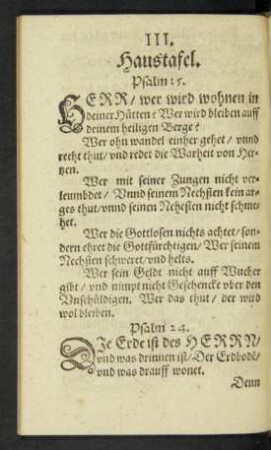 III.
Haustafel.
Psalm 15.
HERR/ wer wird wohnen in
deiner Hütten? Wer wird bleiben auff
deinem heiligen Berge?
Wer ohn wandel einher gehet/ vnnd
recht thut/ vnd redet die Warheit von Her-
tzen.
Wer mit seiner Zungen nicht ver-
leumbdet/ Vnnd seinem Nechsten kein ar-
ges thut/ vnnd seinen Nehesten nicht schme-
het.
Wer die Gottlosen nichts achtet/ son-
dern ehret die Gottfürchtigen/ Wer seinem
Nechsten schweret/ vnd helts.
Wer sein Geldt nicht auff Wucher
gibt/ vnd nimpt nicht Geschencke vber den
Vnschüldigen. Wer das thut/ der wird
wol bleiben.
Psalm 24.
DIe Erde ist des HERRN/
vnd was drinnen ist/ Der Erdbodē/
vnd was drauff wonet.
Denn